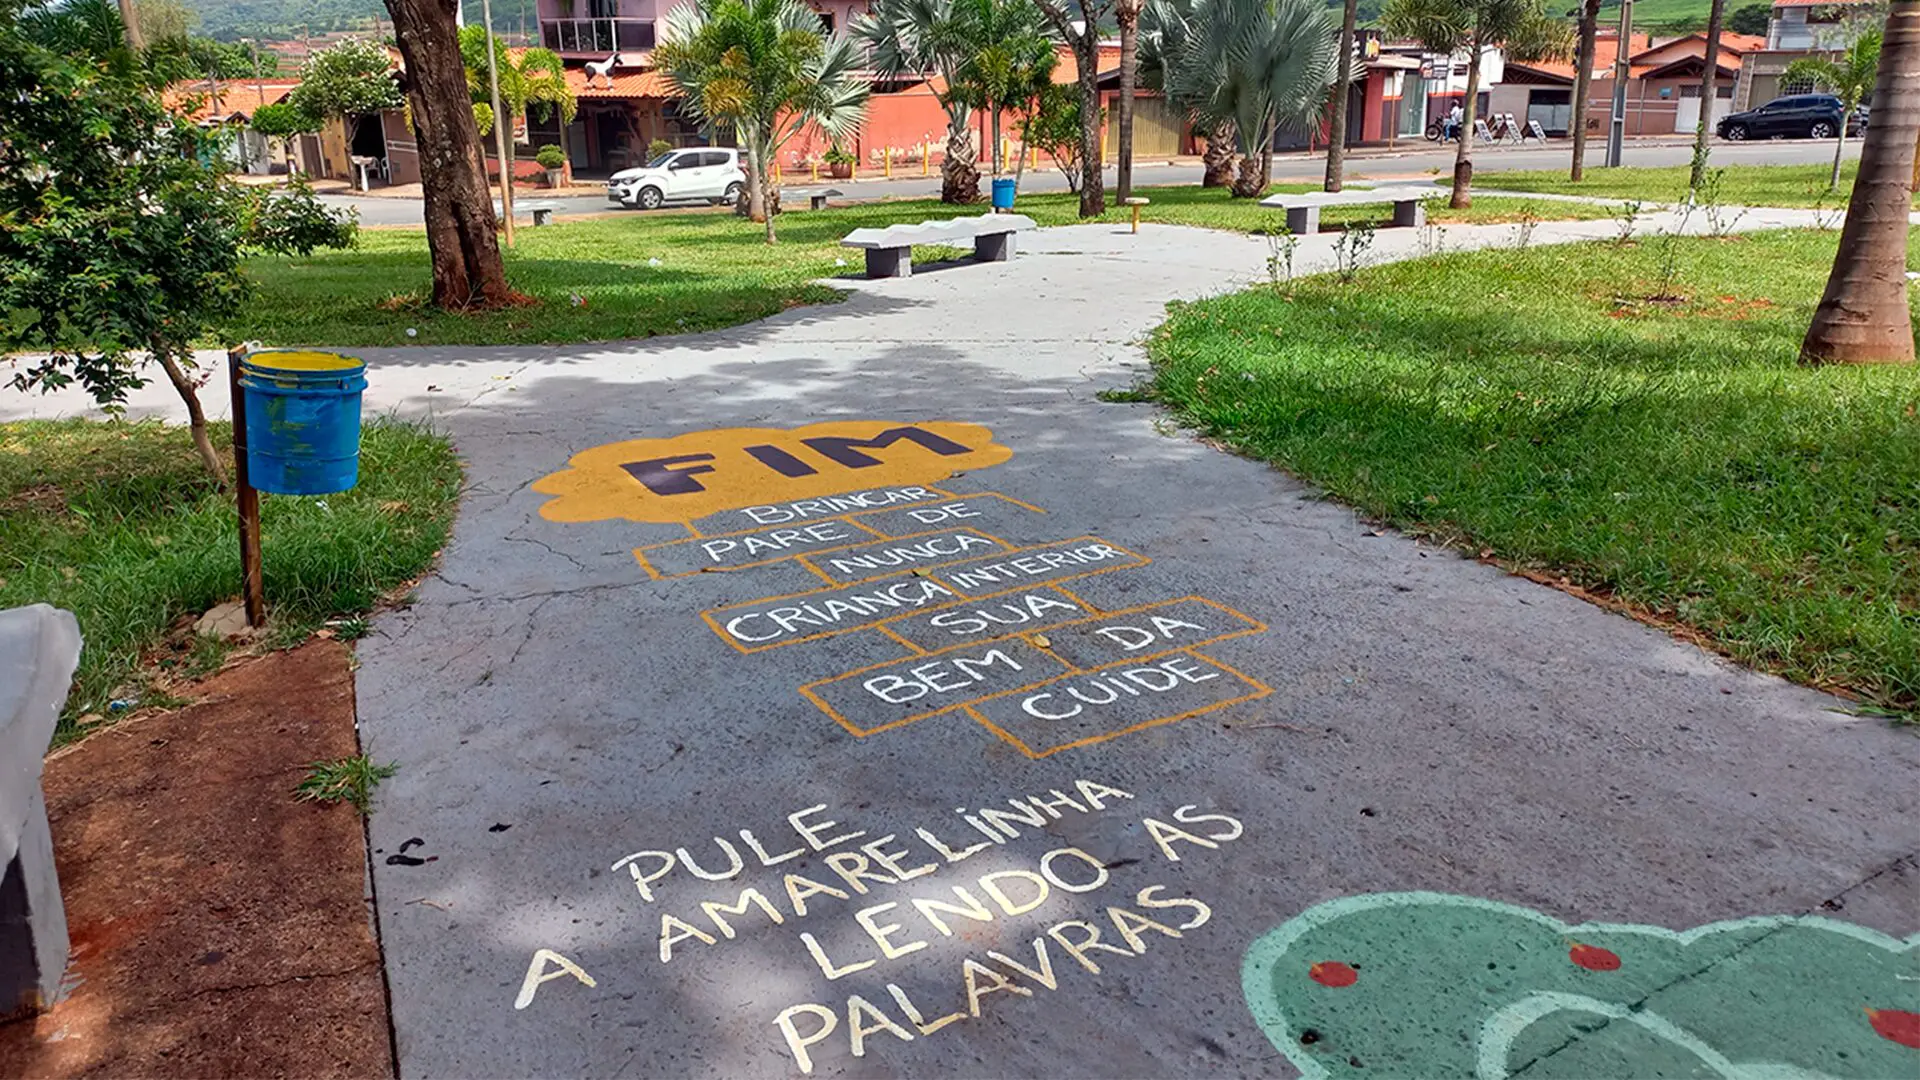 FIM
BRINCAR
PARE DE
NUNCA
CRIANÇA INTERIOR
SUA
BEM DA
CUIDE
PULE
A AMARELINHA
LENDO AS
PALAVRAS